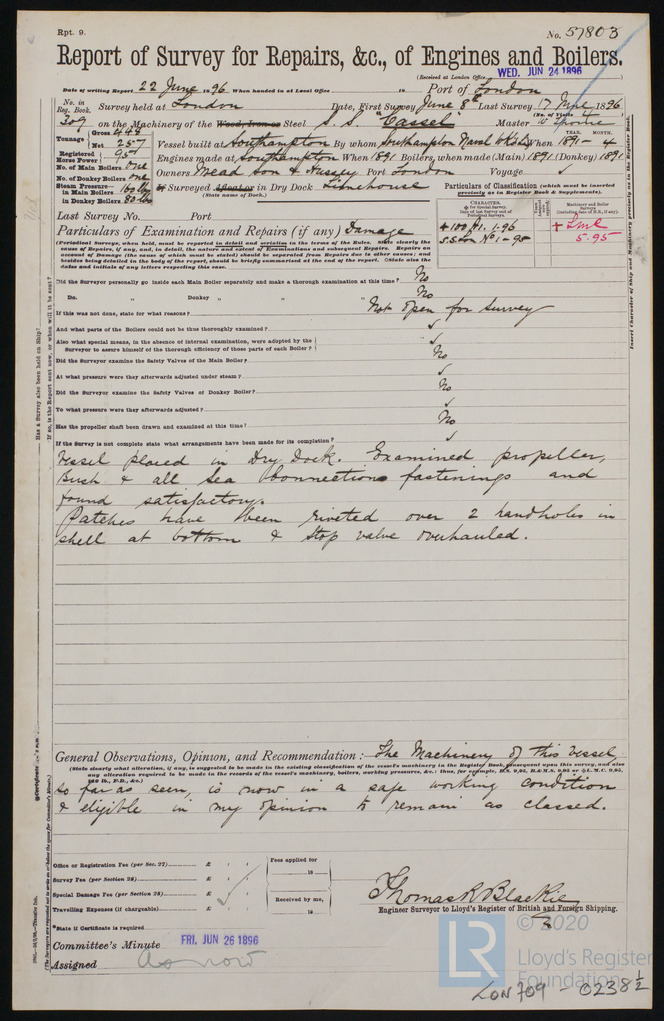 Rpt. 9.
No. 57803
Report of Survey for Repairs, &c., of Engines and Boilers.
(Received at London Office WED. JUN 24 1896
Date of writing Report 22 June 1896 When handed in at Local Office 18 Port of London
No. in Reg. Book. Survey held at London Date, First Survey June 8th Last Survey 17 June 1896
(No. of Visits
309 on the Machinery of the Wood, Iron or Steel S. S. "Cassel" Master
Tonnage Gross 448 Net 257
YEAR. MONTH.
Vessel built at Southampton By whom Southampton Naval Wks When 1891 - 4
Registered Horse Power 95
Engines made at Southampton When 1891 Boilers, when made (Main) 1891 (Donkey) 1891
No. of Main Boilers one
No. of Donkey Boilers one
Owners Mead Son & Hussey Port London Voyage
Steam Pressure—
in Main Boilers 160 lbs
in Donkey Boilers 80 lbs
If Surveyed Afloat or in Dry Dock Limehouse
(State name of Dock.)
Particulars of Classification (which must be inserted precisely as in Register Book & Supplements).
CHARACTER.
Machinery and Boiler Surveys
+ 100 A1. 1.96
S.S. Lon No 1 - 95
+ LMC
5.95
Last Survey No. Port
Particulars of Examination and Repairs (if any) Damage
(Periodical Surveys, when held, must be reported in detail and seriatim in the terms of the Rules. State clearly the
cause of Repairs, if any, and, in detail, the nature and extent of Examinations and subsequent Repairs. Repairs on
account of Damage (the cause of which must be stated) should be separated from Repairs due to other causes; and
besides being detailed in the body of the report, should be briefly summarised at the end of the report. State also the
dates and initials of any letters respecting this case.
Did the Surveyor personally go inside each Main Boiler separately and make a thorough examination at this time? No
Do. " Donkey " " " No
If this was not done, state for what reasons? Not open for survey
And what parts of the Boilers could not be thus thoroughly examined? ✓
Also what special means, in the absence of internal examination, were adopted by the
Surveyor to assure himself of the thorough efficiency of those parts of each Boiler? ✓
Did the Surveyor examine the Safety Valves of the Main Boiler? No
At what pressure were they afterwards adjusted under steam? ✓
Did the Surveyor examine the Safety Valves of Donkey Boiler? No
To what pressure were they afterwards adjusted? ✓
Has the propeller shaft been drawn and examined at this time? No
If the Survey is not complete state what arrangements have been made for its completion? ✓
Vessel placed in Dry Dock. Examined propeller,
Bush & all Sea Connections fastenings and
found satisfactory.
Patches have been riveted over 2 handholes in
shell at bottom & stop valve overhauled.
General Observations, Opinion, and Recommendation: The Machinery of this vessel
(State clearly what alteration, if any, is suggested to be made in the existing classification of the vessel's machinery in the Register Book, consequent upon this survey, and also
any alteration required to be made in the records of the vessel's machinery, boilers, working pressures, &c.; thus, for example, B.S. 9,95, B.&M.S. 9,95 or L.M.C. 9,95,
so far as seen, is now in a safe working condition
& eligible in my opinion to remain as classed.
Office or Registration Fee (per Sec. 27) £
Fees applied for
18
Survey Fee (per Section 28) £
Special Damage Fee (per Section 28) £
Received by me,
Travelling Expenses (if chargeable) £
18
Thomas R Blackie
Engineer Surveyor to Lloyd's Register of British and Foreign Shipping.
*State if Certificate is required
Committee's Minute FRI. JUN 26 1896
Assigned as now
© 2020
LR
Lloyd's Register
Foundation
LON 709 - 0238 1/2